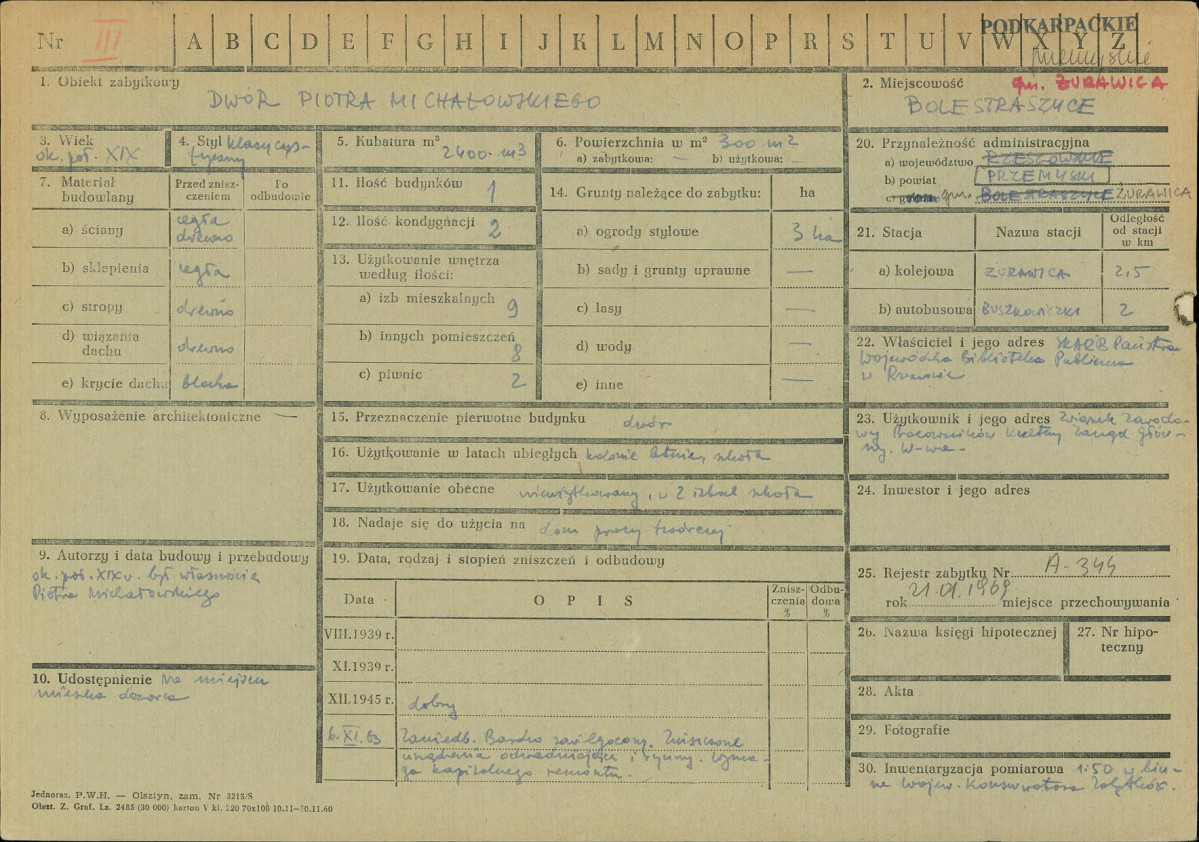 Nr III A B C D E F G H I J K L M N O P R S T U V W X Y Z
PODKARPACKIE
przemyskie
1. Obiekt zabytkowy
DWÓR PIOTRA MICHAŁOWSKIEGO
2. Miejscowość gm. ŻURAWICA
BOLESTRASZYCE
3. Wiek
ok. poł. XIX
4. Styl klasycys-
tyczny
5. Kubatura m³
2400 m3
6. Powierzchnia w m² 300 m2
a) zabytkowa: — b) użytkowa: —
20. Przynależność administracyjna
a) województwo RZESZOWSKIE
b) powiat PRZEMYSKI
c) gm. BOLESTRASZYCE ŻURAWICA
7. Materiał
budowlany
Przed znisz-
czeniem
Po
odbudowie
a) ściany cegła
drewno
b) sklepienia cegła
c) stropy drewno
d) wiązania
dachu drewno
e) krycie dachu blacha
11. Ilość budynków 1
12. Ilość kondygnacji 2
13. Użytkowanie wnętrza
według ilości:
a) izb mieszkalnych 9
b) innych pomieszczeń 8
c) piwnic 2
14. Grunty należące do zabytku: ha
a) ogrody stylowe 3 ha
b) sady i grunty uprawne —
c) lasy —
d) wody —
e) inne —
21. Stacja Nazwa stacji
Odległość
od stacji
w km
a) kolejowa ŻURAWICA 2,5
b) autobusowa BUSZKOWICZKI 2
22. Właściciel i jego adres SKARB Państwa
Wojewódzka Biblioteka Publiczna
w Rzeszowie
8. Wyposażenie architektoniczne —
15. Przeznaczenie pierwotne budynku dwór
16. Użytkowanie w latach ubiegłych kolonie letnie, szkoła
17. Użytkowanie obecne nieużytkowany, w 2 izbach szkoła
18. Nadaje się do użycia na dom pracy twórczej
23. Użytkownik i jego adres Związek Zawodo-
wy Pracowników Kultury Zarząd Głów-
ny. W-wa -
24. Inwestor i jego adres
9. Autorzy i data budowy i przebudowy
ok. poł. XIX w. był własnością
Piotra Michałowskiego
19. Data, rodzaj i stopień zniszczeń i odbudowy
Data OPIS
Znisz-
czenia
%
Odbu-
dowa
%
VIII.1939 r.
XI.1939 r.
XII.1945 r. dobry
6.XI.63 Zaniedb. Bardzo zawilgocony. Zniszczone
urządzenia odwadniające i rynny. Wyma-
ga kapitalnego remontu.
25. Rejestr zabytku Nr A-344
rok 21.01.1969 miejsce przechowywania
26. Nazwa księgi hipotecznej
27. Nr hipo-
teczny
10. Udostępnienie Na miejscu
mieszka dozorca
28. Akta
29. Fotografie
30. Inwentaryzacja pomiarowa 1:50 w biu-
rze Wojew. Konserwatora Zabytków.
Jednoraz. P.W.H. — Olsztyn, zam. Nr 3218/S
Olszt. Z. Graf. Lz. 2485 (30 000) karton V kl. 220 70x100 10.11—20.11.60